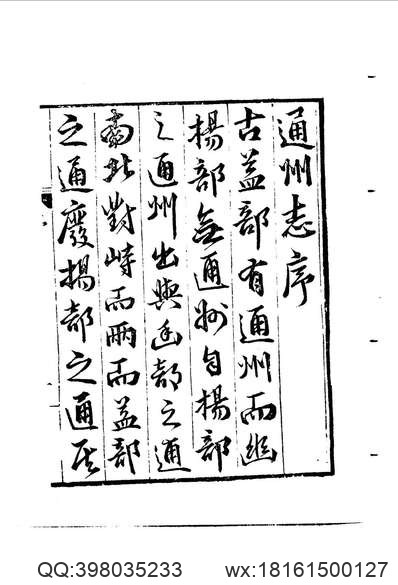 通州志序
古益部有通州而幽
楊部無通州自楊部
之通州出與幽部之通
南北對峙而兩而益部
之通廢揚部之通
QQ:398035233
wx:18161500127